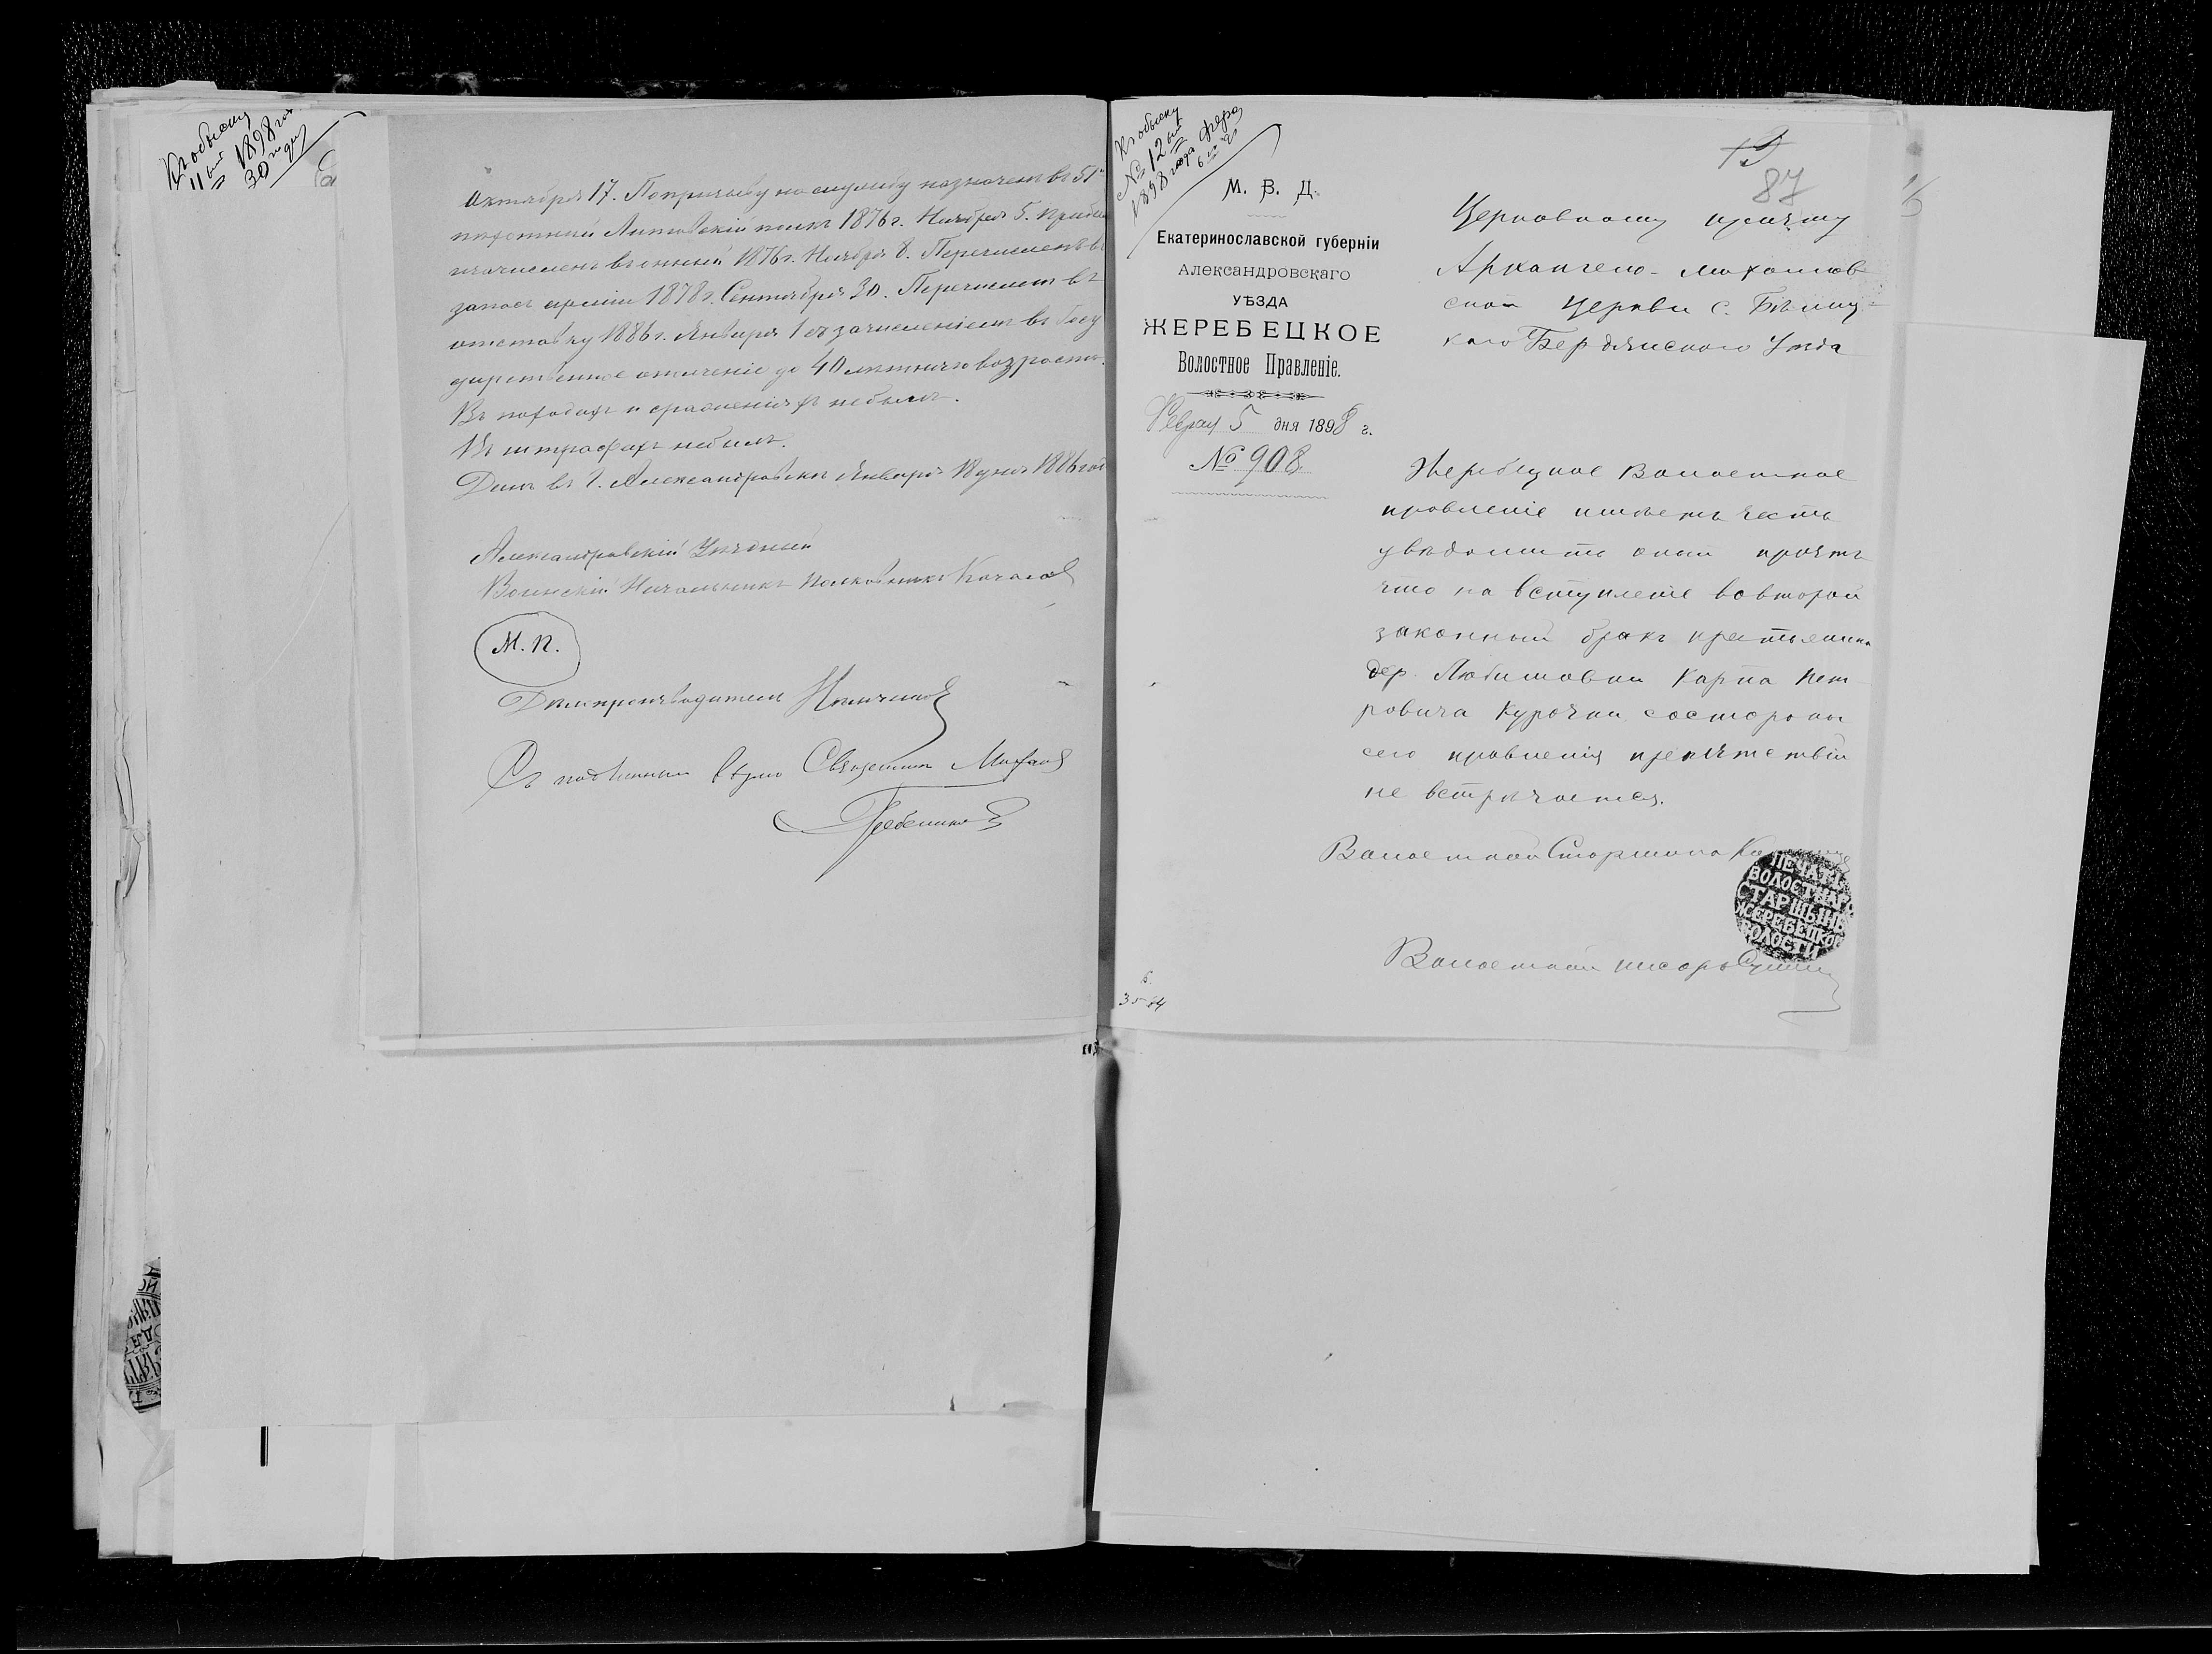 Къ обыску
11 ый
1898 год
30 го дня
Октября 17. По призыву на службу назначенъ въ 51й
пехотный Литовскій полкъ 1876 г. Ноября 5. Прибылъ
и зачисленъ въ оный 1876 г. Ноября 8. Перечисленъ въ
запасъ арміи 1878 г. Сентября 30. Перечисленъ въ
отставку 1886 г. Января 1 съ зачисленіемъ въ Госу
дарственное ополченіе до 40 летняго возраста.
Въ походахъ и сраженіяхъ небылъ.
Въ штрафахъ небылъ.
Данъ въ г. Александровскѣ Января 18 дня 1886 год
Александровскій Уѣздный
Воинскій Начальникъ Полковникъ
М. П.
Дѣлопроизводитель
Съ подлиннымъ вѣрно Священникъ Михаил
Гребенников
Къ обыску
№ 12 ый
1898 года Февр
6 го д
19
87
М. В. Д.
Екатеринославской губерніи
Александровскаго
УѢЗДА
ЖЕРЕБЕЦКОЕ
Волостное Правленіе.
Феврал 5 дня 1898 г.
№ 908
Церковному причту
Архангело-Михайлов
ской Церкви с.
Бердянскаго Уезда
Жеребецкое Волостное
правленіе имѣетъ честь
увѣдомить оный причтъ
что на вступленіе во второй
законный бракъ крестьянина
дер. Любимовки Карпа Пет
ровича Курочки со стороны
сего правленія препятствій
не встрѣчается.
Волостной Старшина
ПЕЧАТЬ
ВОЛОСТНАГО
СТАРШИНЫ
ЖЕРЕБЕЦКОЙ
ВОЛОСТИ
Волостной писарь